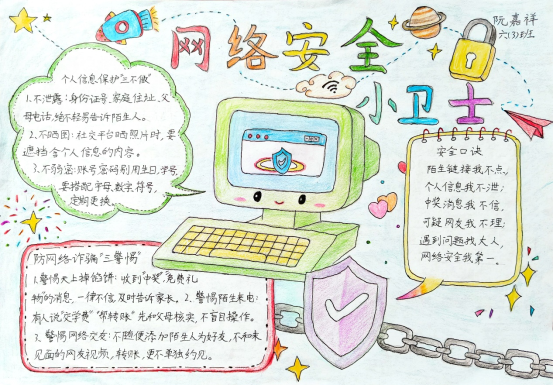 网络安全
小卫士
阮嘉祥
六(3)班
个人信息保护"三不做"
1.不泄露:身份证号、家庭住址、父
母电话,绝不轻易告诉陌生人。
2.不晒图:社交平台晒照片时,要
遮挡含个人信息的内容。
3.不弱密:账号密码别用生日、学号,
要搭配字母、数字、符号,
定期更换。
安全口诀
陌生链接我不点,
个人信息我不泄;
中奖消息我不信,
可疑网友我不理;
遇到问题找大人,
网络安全我第一。
防网络诈骗"三警惕"
1.警惕天上掉馅饼:收到"中奖",免费礼
物的消息,一律不信,及时告诉家长。2.警惕陌生来电:
有人说"交学费""帮转账"先和父母核实,不盲目操作。
3.警惕网络交友:不随便添加陌生人为好友,不和未
见面的网友视频,转账,更不单独约见。